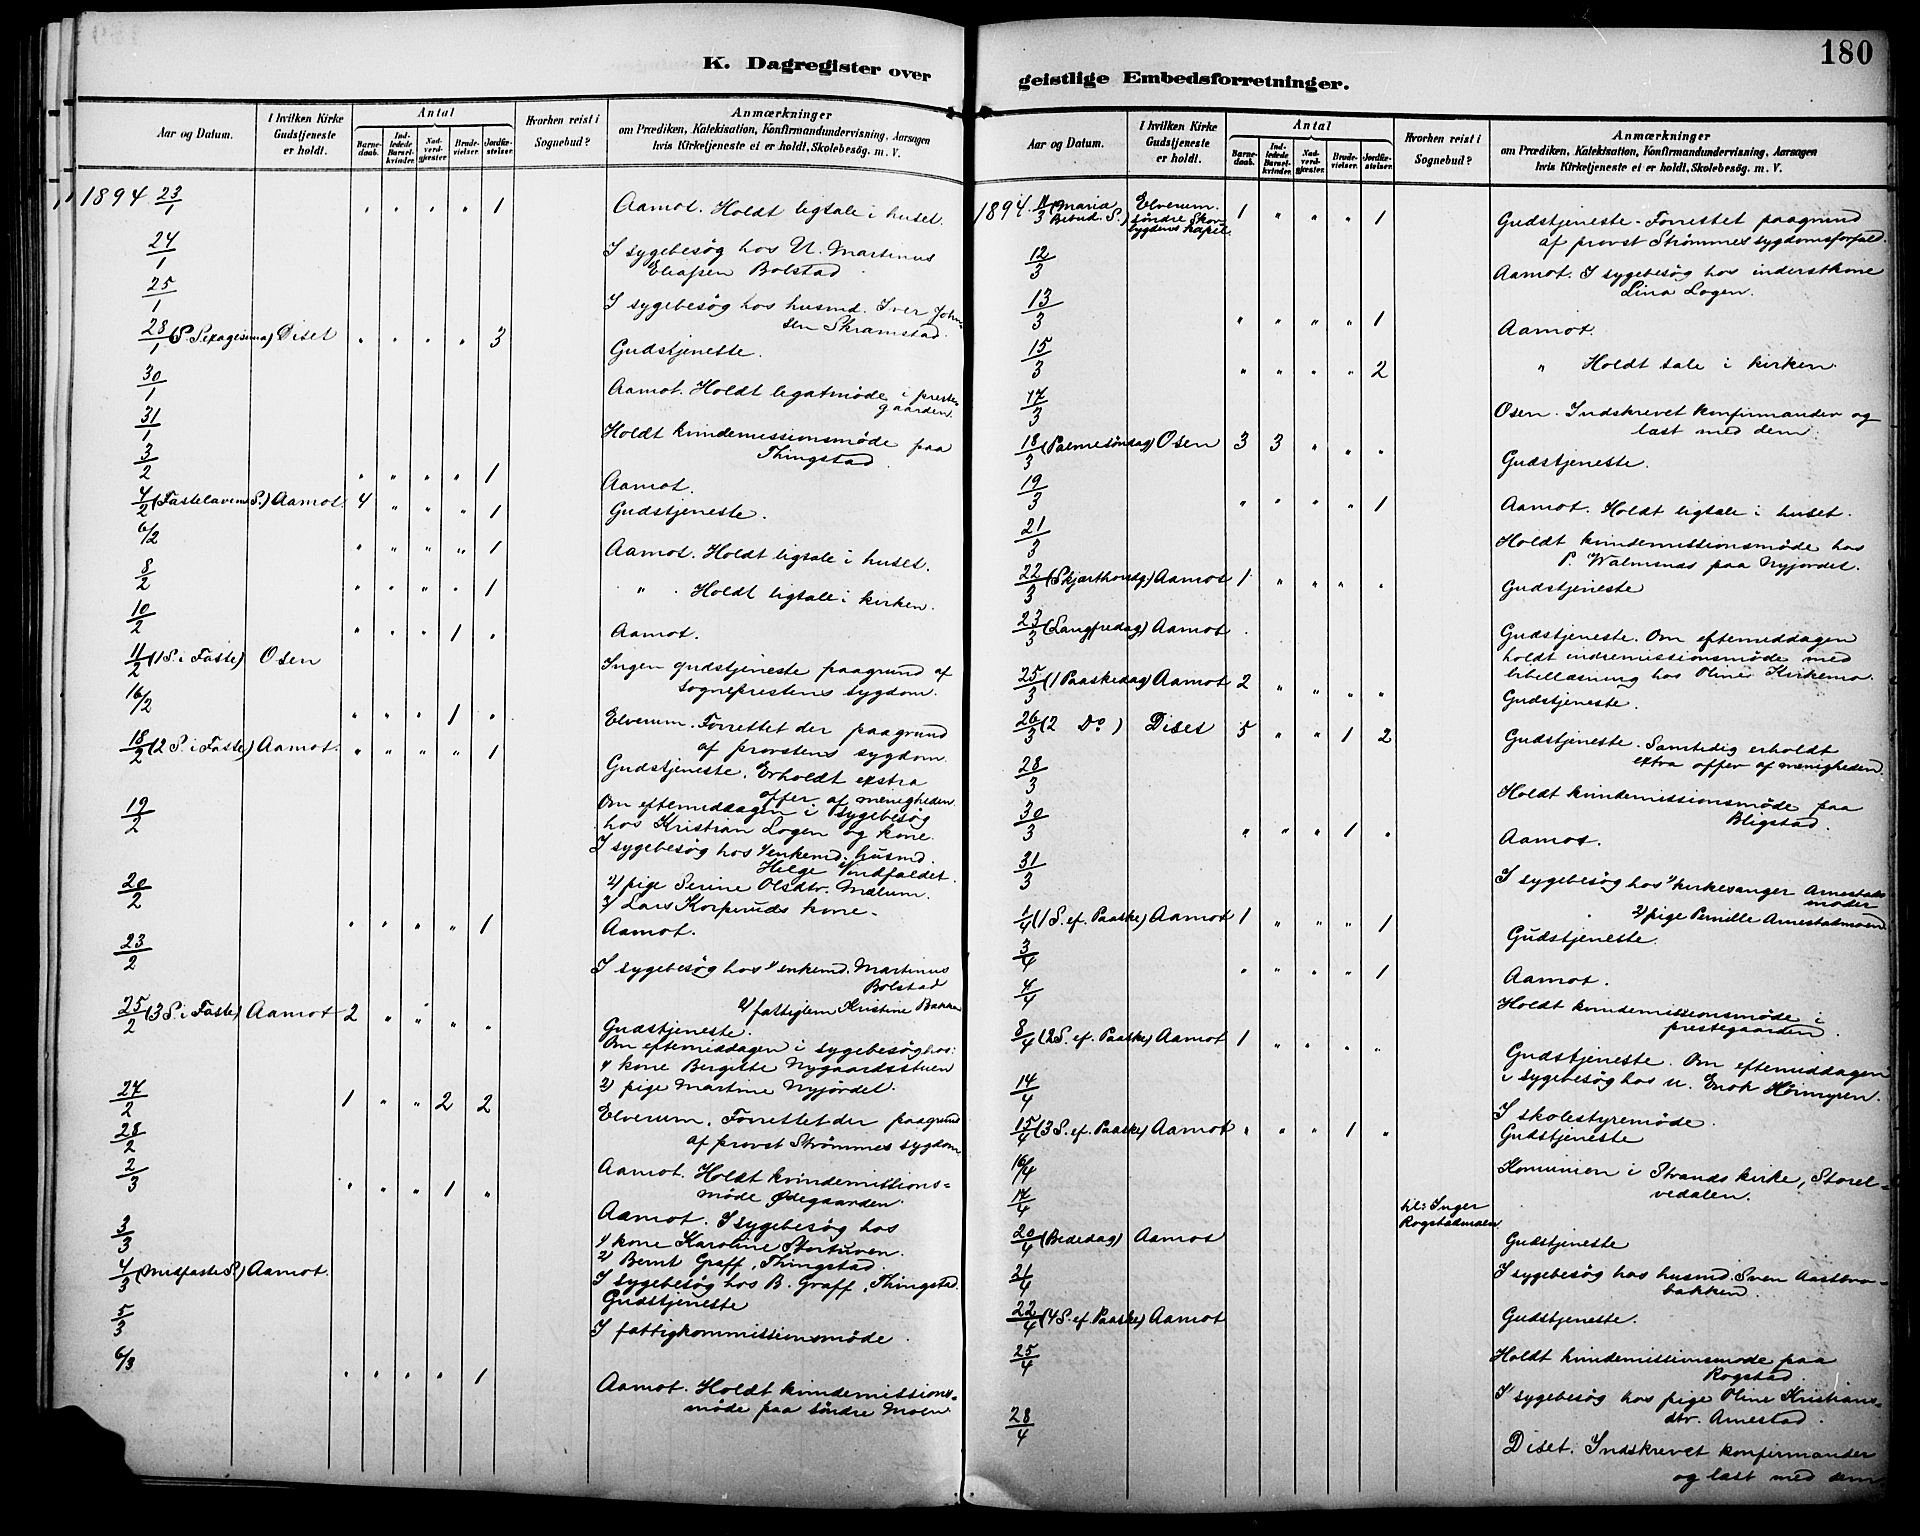 K. Dagregister over
Aar og Datum. | I hvilken Kirke Gudstjeneste er holdt. | Antal | Barnedaab. | Indledede Barselkvinder. | Nadverdgjæster. | Brudevielser. | Jordfæstelser. | Hvorhen reist i Sognebud? | Anmærkninger om Prædiken, Katekisation, Konfirmandundervisning, Aarsagen hvis Kirketjeneste ei er holdt, Skolebesög. m. V.
1894 23/1 " " " " 1 Aamot. Holdt ligtale i huset.
24/1 I sygebesøg hos U. Martinus
Eliassen Bolstad.
25/1 I sygebesøg hos husmd. Iver Johnsen
Skramstad.
28/1 (S. Sexagesima) Diset " " " " 3 Gudstjeneste.
30/1 Aamot. Holdt legatmøde i prestegaarden.
31/1 Holdt kvindemissionsmøde paa
Thingstad.
3/2 " " " " 1 Aamot.
4/2 (Fastelavens S.) Aamot. 4 " " " 1 Gudstjeneste.
6/2 " " " " 1 Aamot. Holdt ligtale i huset.
8/2 " " " " 1 " . Holdt ligtale i kirken.
10/2 " " " 1 " Aamot.
11/2 (1 S. i Faste) Osen Ingen gudstjeneste paagrund af
sogneprestens sygdom.
16/2 " " " 1 " Elverum. Forrettet der paagrund
af provstens sygdom.
18/2 (2 S. i Faste) Aamot. " " " " 1 Gudstjeneste. Erholdt extra
offer af menigheden.
Om eftermiddagen i sygebesøg
hos Kristian Logen og kone.
19/2 I sygebesøg hos 1/ enkemd. husmd.
Helge Vindfaldet.
2/ pige Serine Olsdtr. Mælum.
3/ Lars Korperuds kone.
20/2 " " " " 1 Aamot.
23/2 I sygebesøg hos 1/ enkemd. Martinus
Bolstad
2/ fattiglem Kristine Bakken
25/2 (3 S. i Faste) Aamot 2 " " " " Gudstjeneste.
Om eftemiddagen i sygebesøg hos:
1/ kone Bergitte Nygaardsstuen
2/ pige Martine Nyjordet.
27/2 1 " " 2 2 Elverum. Forrettet der paagrund
af provst Strømmes sygdom.
28/2 Aamot. Holdt kvindemissionsmøde,
Ødegaarden.
2/3 " " " 1 " Aamot. I sygebesøg hos
1/ kone Karoline Stortuven.
2/ Bernt Graff, Thingstad.
3/3 I sygebesøg hos B. Graff, Thingstad.
4/3 (Midfaste S.) Aamot. Gudstjeneste
5/3 I fattigkommissionsmøde.
6/3 " " " " 1 Aamot. Holdt kvindemissionsmøde
paa søndre Moen.
geistlige Embedsforretninger.
180
Aar og Datum. | I hvilken Kirke Gudstjeneste er holdt. | Antal | Barnedaab. | Indledede Barselkvinder. | Nadverdgjæster. | Brudevielser. | Jordfæstelser. | Hvorhen reist i Sognebud? | Anmærkninger om Prædiken, Katekisation, Konfirmandundervisning, Aarsagen hvis Kirketjeneste ei er holdt, Skolebesög. m. V.
1894. 11/3 (Maria Bebud. S.) Elverum. søndre Skovbygdens kapel. 1 " " " 1 Gudstjeneste. Forrettet paagrund
af provst Strømmes sygdomsforfald.
12/3 Aamot. I sygebesøg hos inderstkone
Lina Logen.
13/3 " " " " 1 Aamot.
15/3 " " " " 2 " Holdt tale i kirken.
17/3 Osen. Indskrevet konfirmander og
læst med dem.
18/3 (Palmesøndag) Osen 3 3 " " " Gudstjeneste.
19/3 " " " " 1 Aamot. Holdt ligtale i huset.
21/3 Holdt kvindemissionsmøde hos
P. Walmsnæs paa Nyjordet.
22/3 (Skjærthorsdg) Aamot 1 " " " " Gudstjeneste
23/3 (Langfredag) Aamot . Gudstjeneste. Om eftemiddagen
holdt indremissionsmøde med
bibellæsning hos Oline Kirkemo.
25/3 (1 Paaskedag) Aamot 2 " " " " Gudstjeneste.
26/3 (2 Do ) Diset 5 " " 1 2 Gudstjeneste. Samtidig erholdt
extra offer af menigheden.
28/3 Holdt kvindemissionsmøde paa
Bligstad.
30/3 " " " 1 " Aamot.
31/3 I sygebesøg hos 1/ kirkesanger Arnestads
moder
2/ pige Pernille Arnestadmoen
1/4 (1 S. ef. Paaske) Aamot 1 " " " 1 Gudstjeneste.
3/4 " " " " 1 Aamot.
4/4 Holdt kvindemissionsmøde i
prestegaarden.
8/4 (2 S. ef. Paaske) Aamot 1 " " " " Gudstjeneste. Om eftemiddagen
i sygebesøg hos u. Enok Hornmyren.
14/4 I skolestyremøde.
15/4 (3 S. ef. Paaske) Aamot " " " 1 " Gudstjeneste
16/4 Komunien i Strands kirke, Storelvedalen.
17/4 til: Inger
Rogstadmoen
20/4 (Bededag) Aamot Gudstjeneste
21/4 I sygebesøg hos husmd. Sven Aastbrobakken.
22/4 (4 S. ef. Paaske) Aamot Gudstjeneste.
25/4 Holdt kvindemissionsmøde paa
Rogstad.
I sygebesøg hos pige Oline Kristiansdtr.
Arnestad.
28/4 Diset. Indskrevet konfirmander
og læst med dem